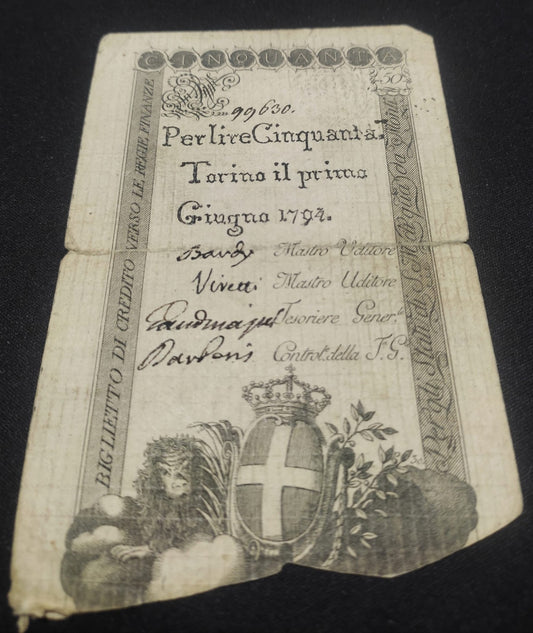 CINQUANTA
50
N 99630.
Per lire Cinquanta.
Torino il primo
Giugno 1794.
Mastro Uditore
Mastro Uditore
Tesoriere Gener.le
Control.r della T. G.
BIGLIETTO DI CREDITO VERSO LE REGIE FINANZE
Per gli Stati di S. M.